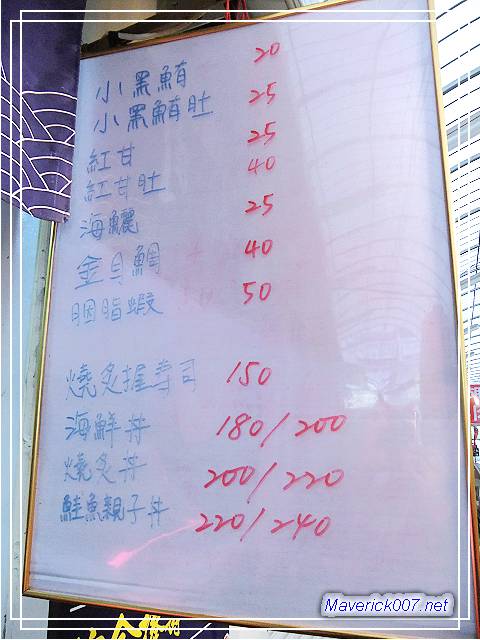 小黑鮪 20
小黑鮪肚 25
紅甘 25
紅甘肚 40
海鱺 25
金目鯛 40
胭脂蝦 50
燒炙握壽司 150
海鮮丼 180/200
燒炙丼 200/220
鮭魚親子丼 220/240
Maverick007.net